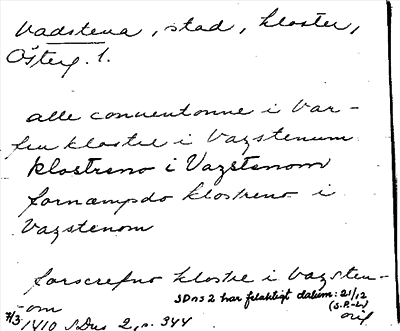 Vadstena, stad, kloster,
Österg. l.
alle conuentonne i Var-
fru klostre i Vazstenum
klostreno i Vazstenom
fornæmpdo klostreno i
Vazstenom
forscrefno klostre i Vazsten-
om
SDns 2 har felaktigt datum: 21/12
(S.P-L)
7/3 1410 SDns 2, s. 344 orig.